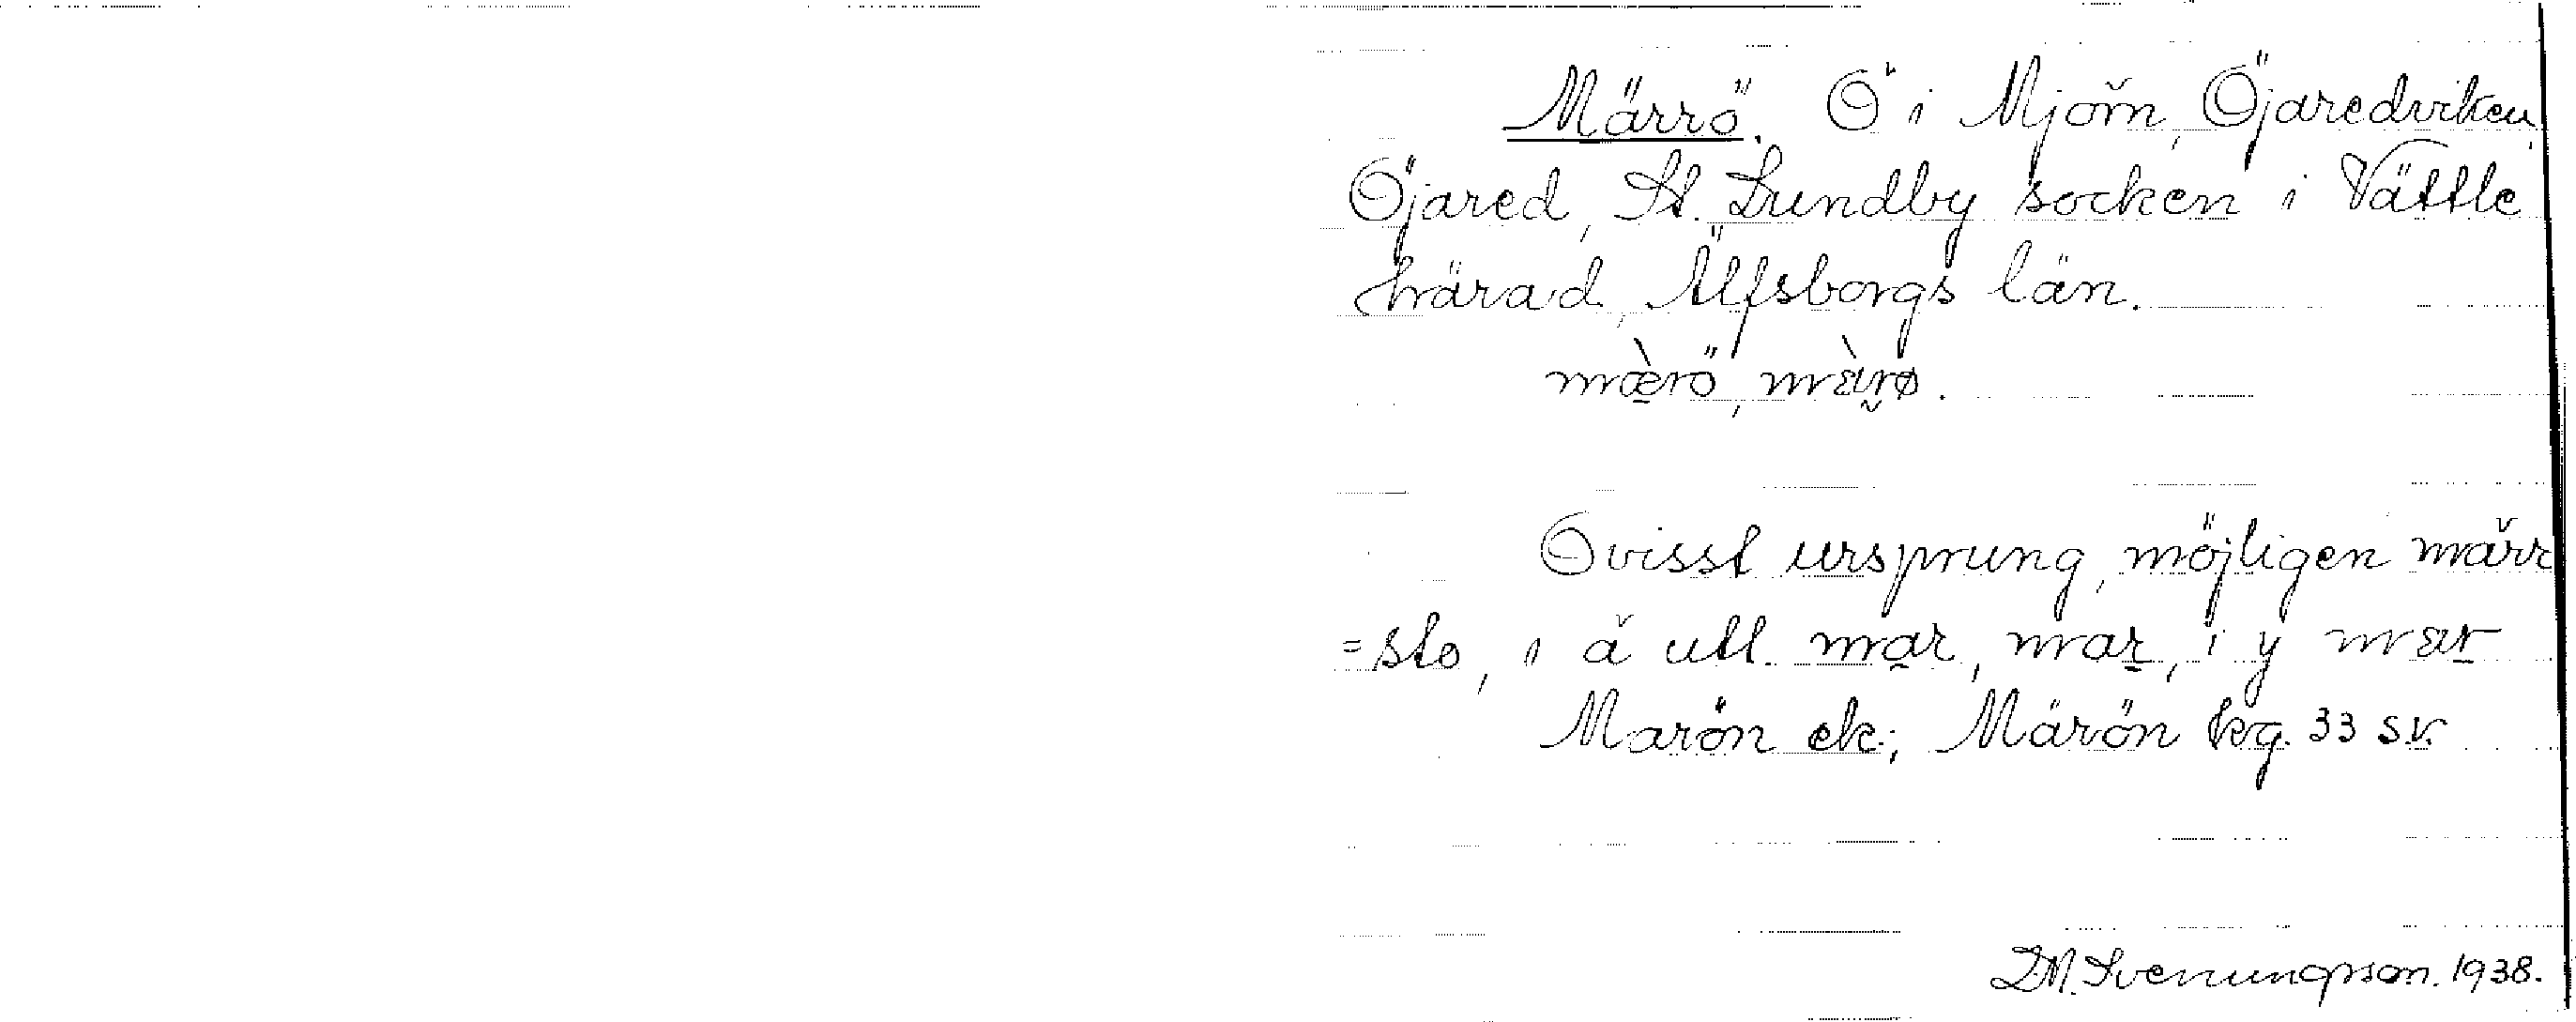 Märrö. Ö i Mjörn, Öjaredviken,
Öjared, St. Lundby socken i Vättle
härad, Älfsborgs län.
mæ̀rö, mæ̀rø.
Ovisst ursprung, möjligen märr
=sto, i ä utt. mær, mær, i y mær
Marön ek; Märön kg. 33 s.v.
D.M. Svenungsson. 1938.